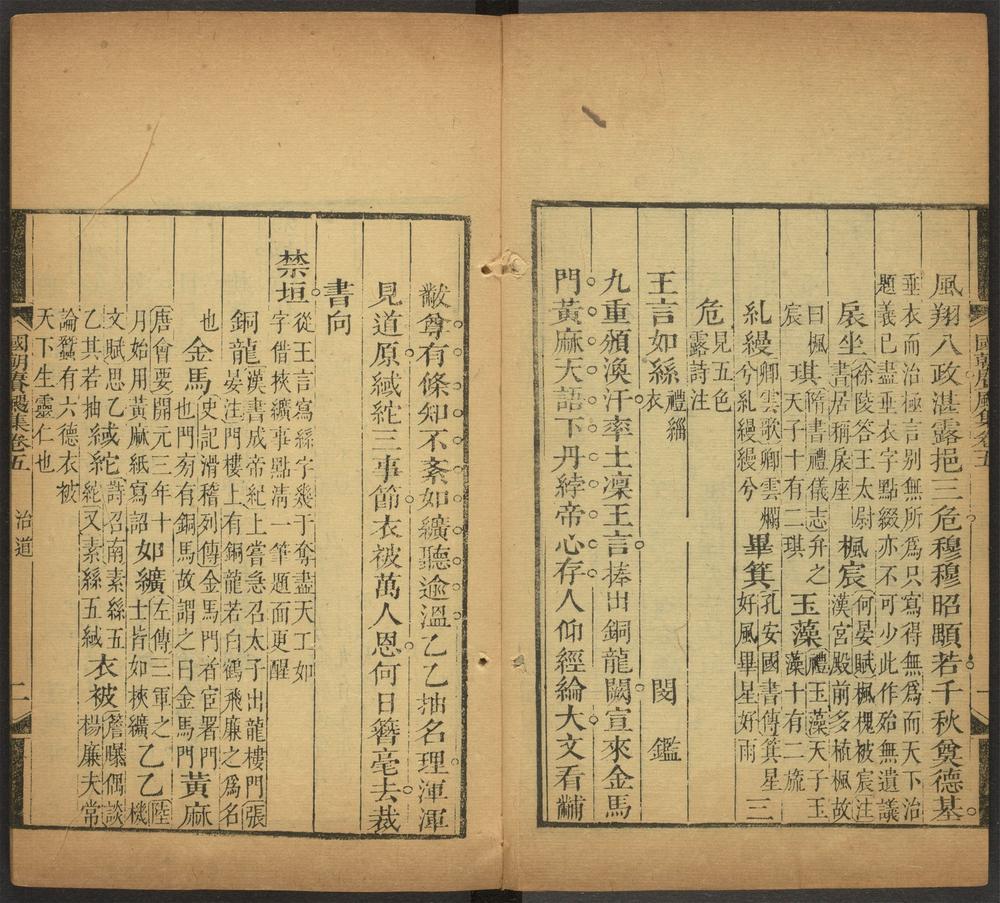 風翔八政湛露挹三危穆穆昭顒若千秋奠德基
垂衣而治極言别無所爲只寫得無爲而天下治
題義已盡垂衣字點綴亦不可少此作殆無遺議
扆坐徐陵答王太尉書居稱扆座楓宸何晏賦楓槐被宸注漢宮殿前多梳楓故
曰楓宸璂隋書禮儀志弁之璂天子十有二璂玉藻禮玉藻天子玉藻十有二旒
糺縵卿雲歌卿雲爛兮糺縵縵兮畢箕孔安國書傳箕星好風畢星好雨三
危見五色露詩注
王言如絲禮緇衣 閔鑑
九重頒渙汗率土凜王言捧出銅龍闕宣來金馬
門黃麻天語下丹綍帝心存人仰經綸大文看黼
黻尊有條知不紊如纊聽逾溫乙乙抽名理渾渾
見道原緎紽三事節衣被萬人恩何日簪毫去裁
書向
禁垣從王言寫絲字幾于奪盡天工如字借挾纊事點淸一筆題面更醒
銅龍漢書成帝紀上嘗急召太子出龍樓門張晏注門樓上有銅龍若白鶴飛廉之爲名
也金馬史記滑稽列傳金馬門者宦署門也門旁有銅馬故謂之曰金馬門黃麻
唐會要開元三年十月始用黃麻紙寫詔如纊左傳三軍之士皆如挾纊乙乙陸機
文賦思乙乙其若抽緎紽詩召南素絲五紽又素絲五緎衣被詹曝偶談楊廉夫常
論蠶有六德衣被天下生靈仁也
國朝唇風集卷五 一
國朝唇風集卷五 治道 二